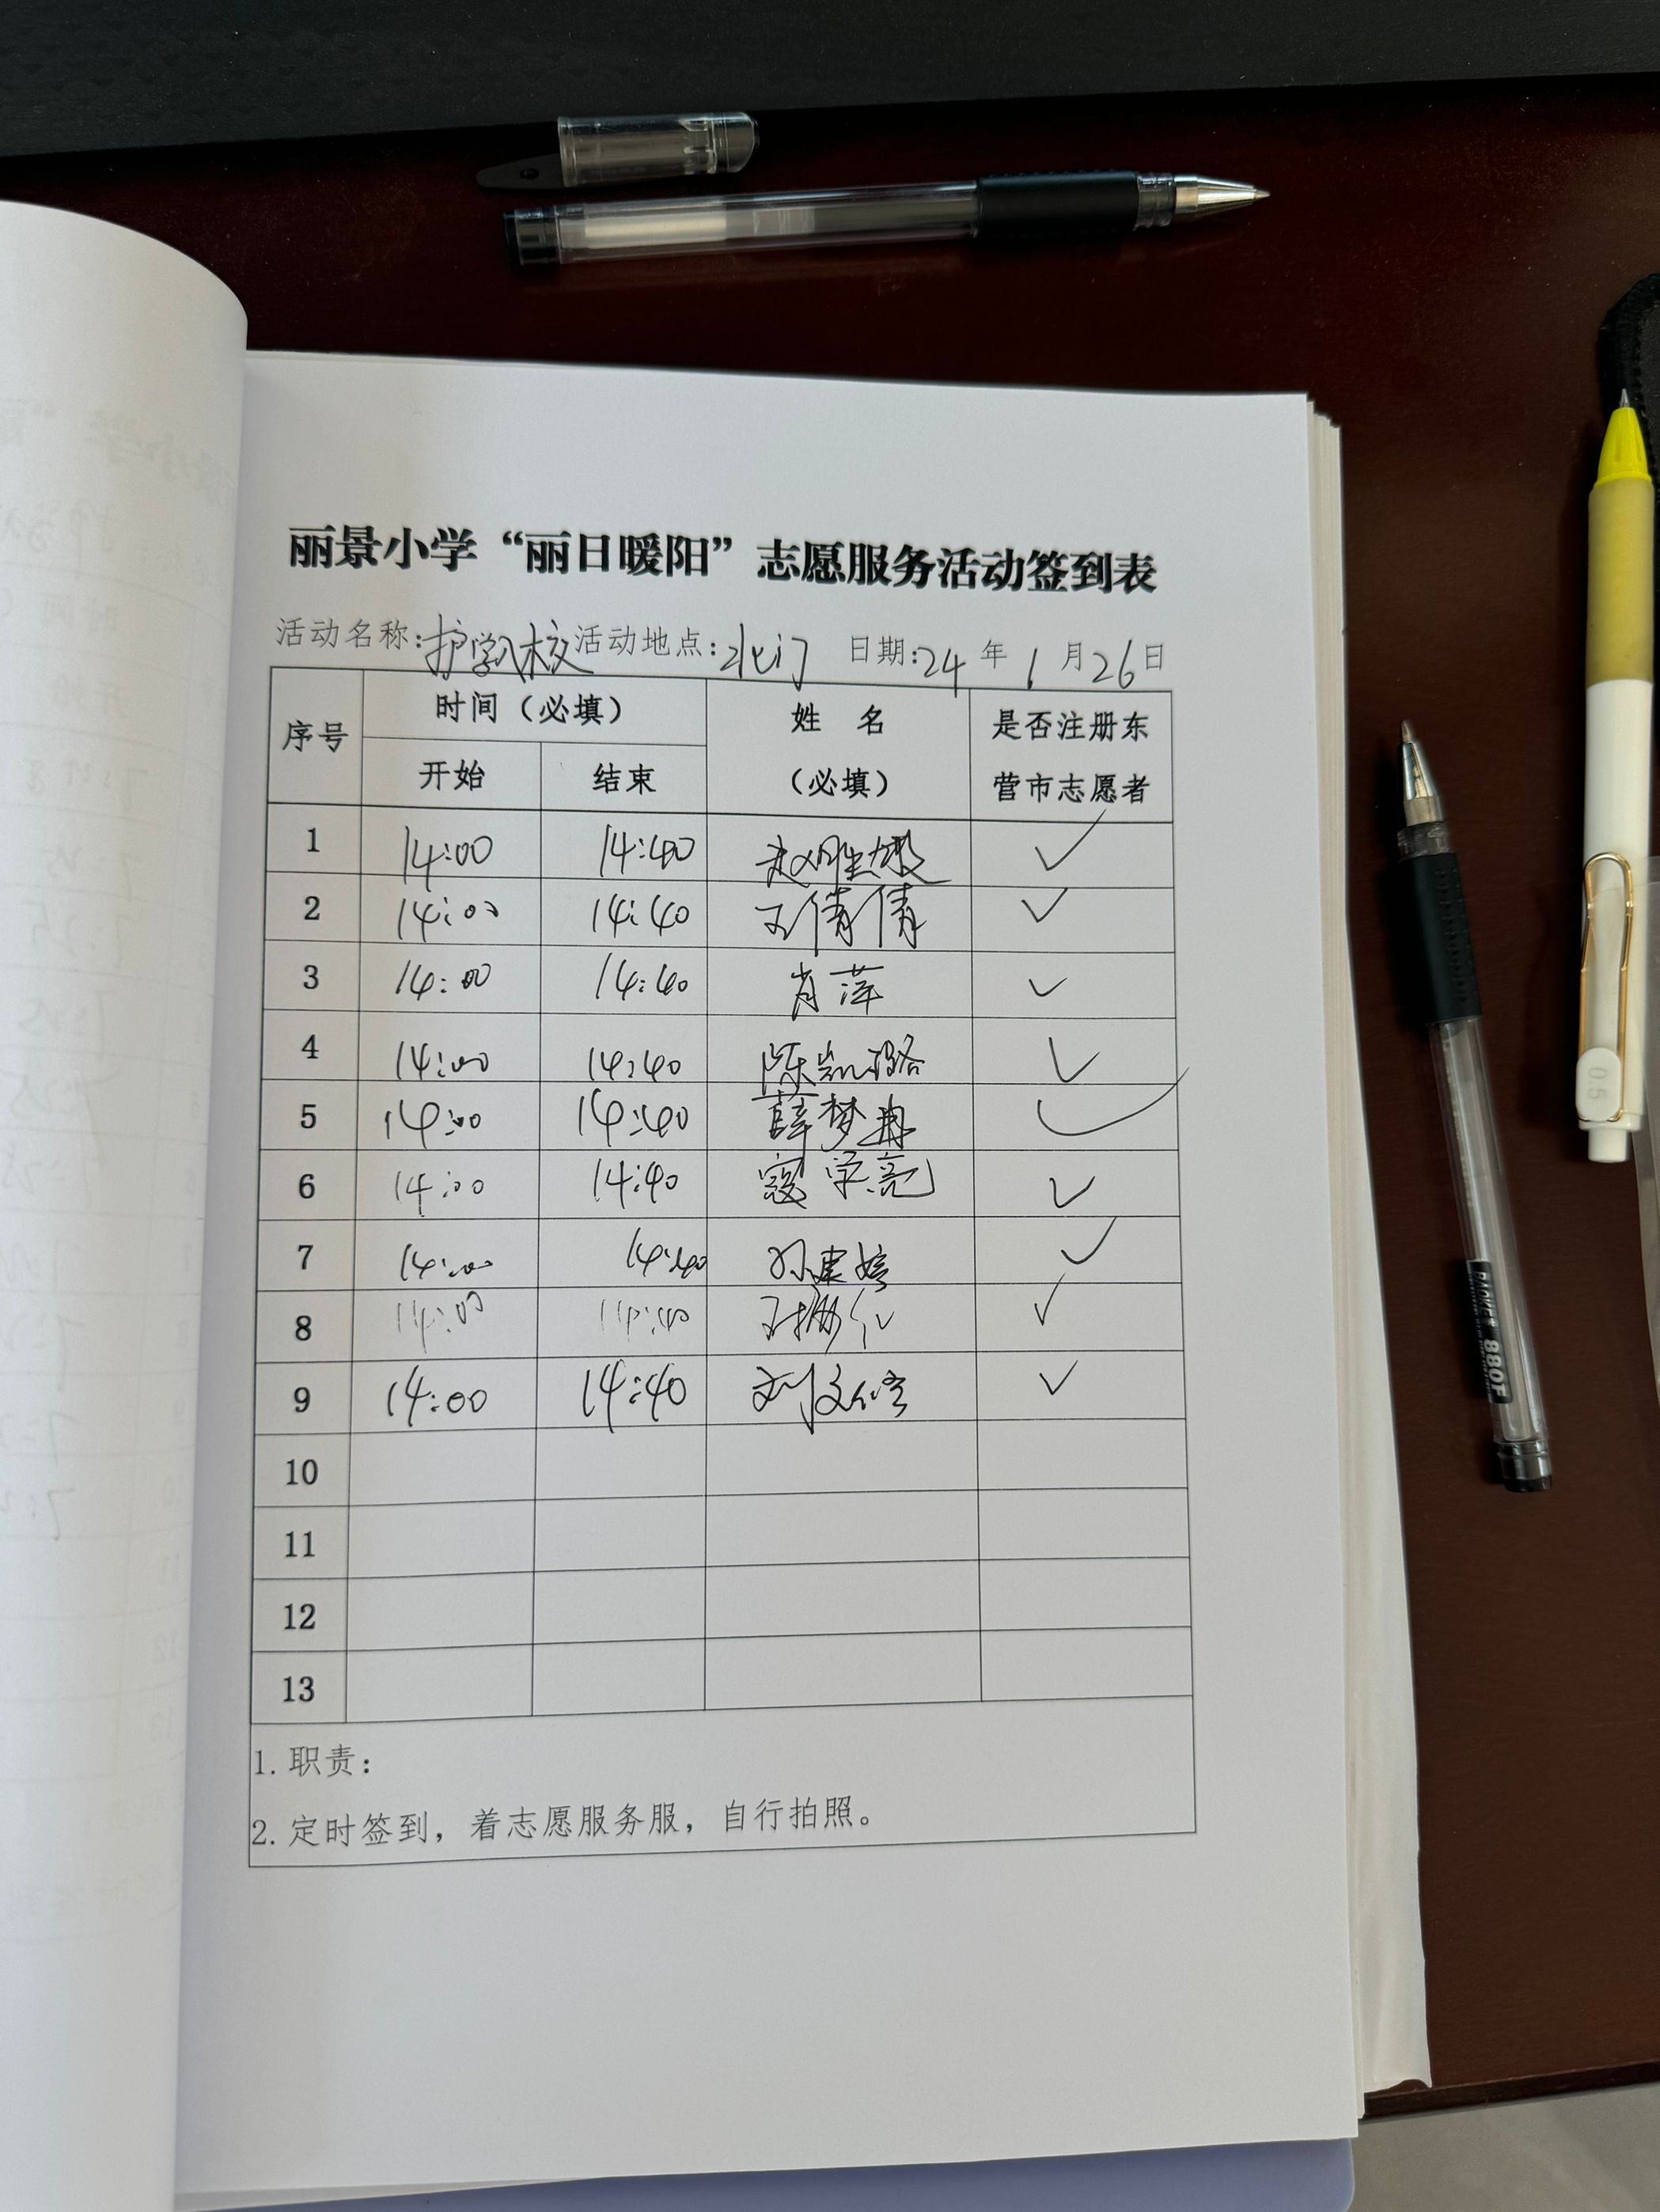 丽景小学“丽日暖阳”志愿服务活动签到表
活动名称:护学入校 活动地点:北门 日期:24年1月26日
序号 时间（必填） 姓名（必填） 是否注册东营市志愿者
开始 结束
1 14:00 14:40 ✓
2 14:00 14:40 王倩倩 ✓
3 14:00 14:40 肖萍 ✓
4 14:00 14:40 陈凯璐 ✓
5 14:00 14:40 薛梦冉 ✓
6 14:00 14:40 寇学亮 ✓
7 14:00 14:40 孙建婷 ✓
8 14:00 14:40 ✓
9 14:00 14:40 ✓
10
11
12
13
1. 职责：
2. 定时签到，着志愿服务服，自行拍照。
0.5
880F